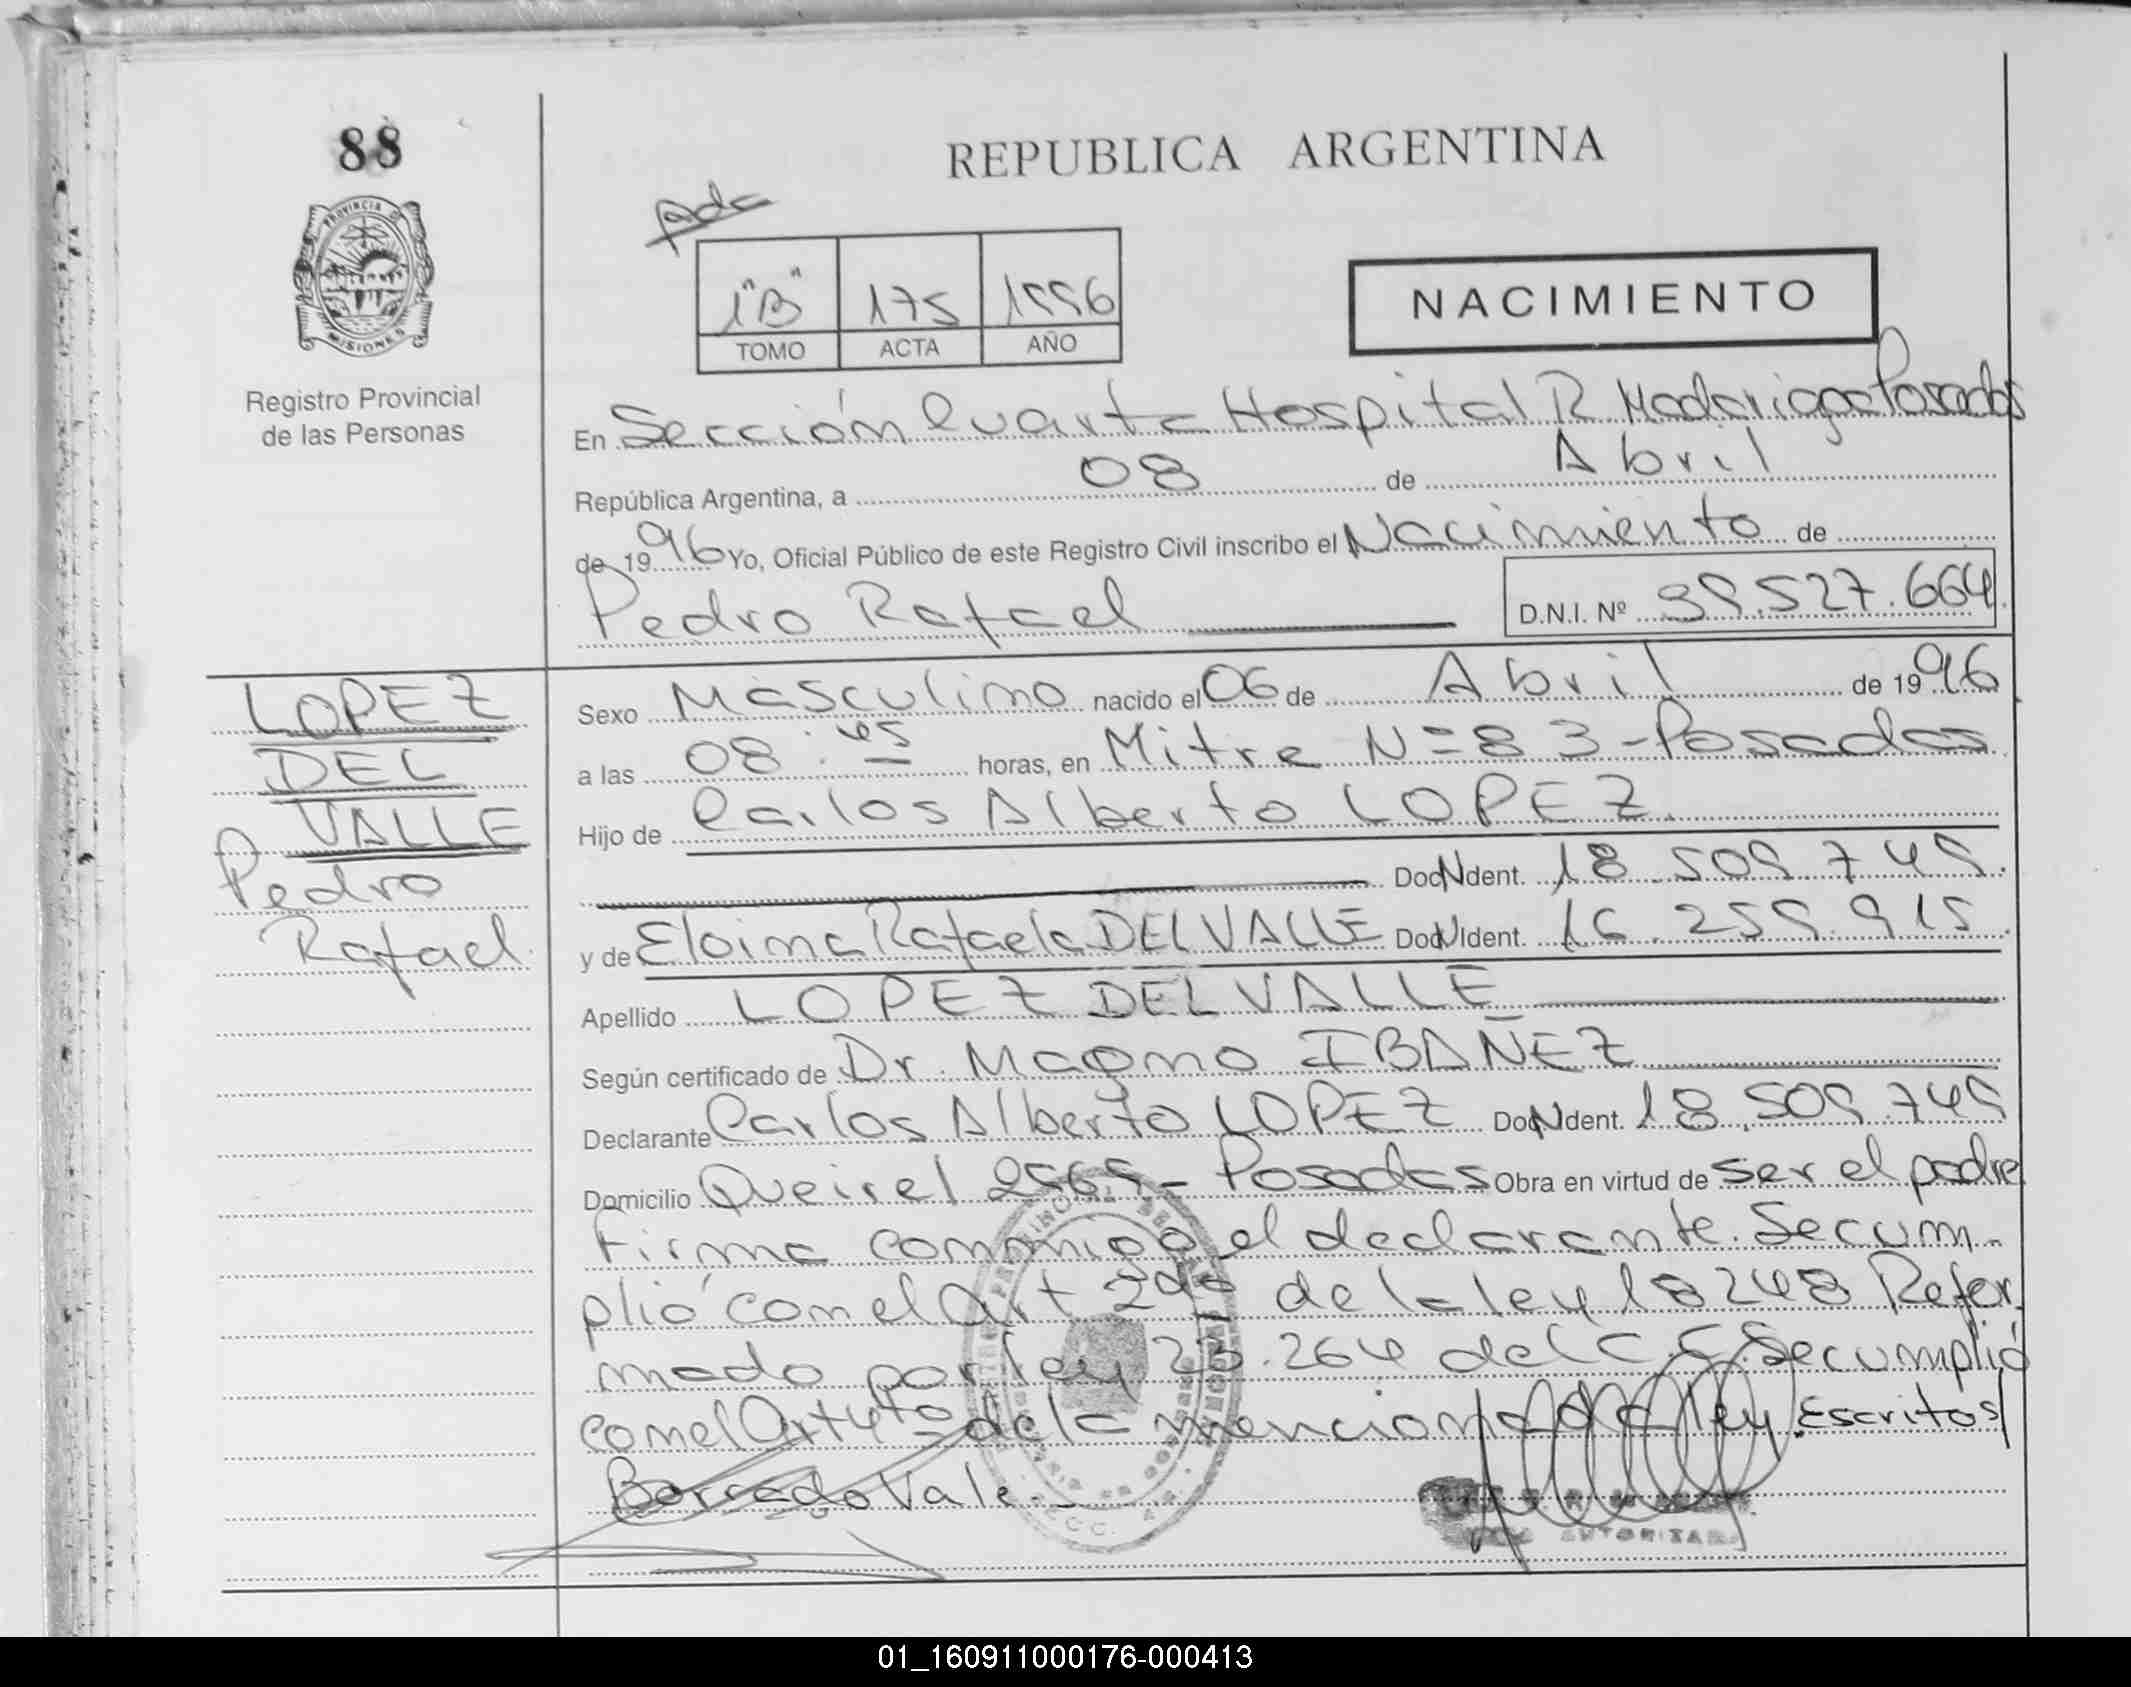 88
REPUBLICA ARGENTINA
PROVINCIA DE
MISIONES
Registro Provincial
de las Personas
Adc
1"B" 175 1996
TOMO ACTA AÑO
NACIMIENTO
En Sección Cuarta Hospital R. Madariaga Posadas
República Argentina, a 08 de Abril
de 1996 Yo, Oficial Público de este Registro Civil inscribo el Nacimiento de
Pedro Rafael
D.N.I. Nº 39.527.664
LOPEZ
DEL
VALLE
Pedro
Rafael
Sexo Masculino nacido el 06 de Abril de 1996
a las 08:45 horas, en Mitre Nº 83 - Posadas
Hijo de Carlos Alberto LOPEZ
DocNIdent. 18.509.749
y de Eloina Rafaela DEL VALLE DocNIdent. 16.259.915
Apellido LOPEZ DEL VALLE
Según certificado de Dr. Magno IBAÑEZ
Declarante Carlos Alberto LOPEZ DocNIdent. 18.509.749
Domicilio Queirel 2969 - Posadas Obra en virtud de ser el padre
Firma conmigo el declarante. Se cum-
plió con el Art 2do de la ley 18248 Refor
mado por ley 23.264 del C.C. Se cumplió
con el Art 4to de la mencionada ley. Escritos/
Borrado Vale.-
AUTORIZA
01_160911000176-000413